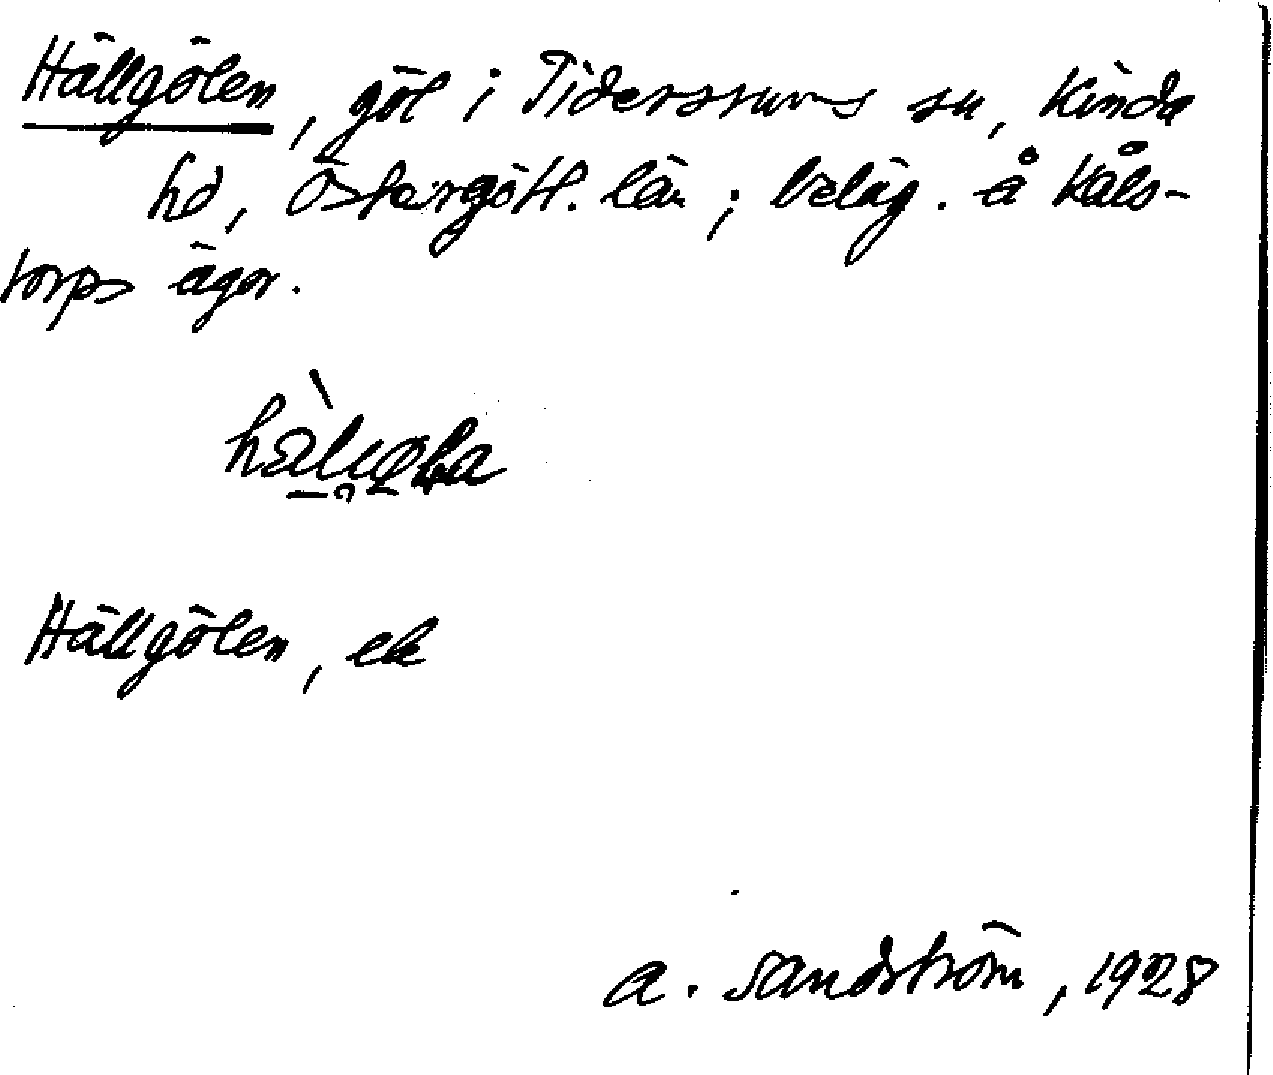 Hällgölen, göl i Tidersrums sn, Kinda
hd, Östergötl. län; beläg. å Kåls-
torps ägor.
Hällgölen, ek
A. Sandström, 1928